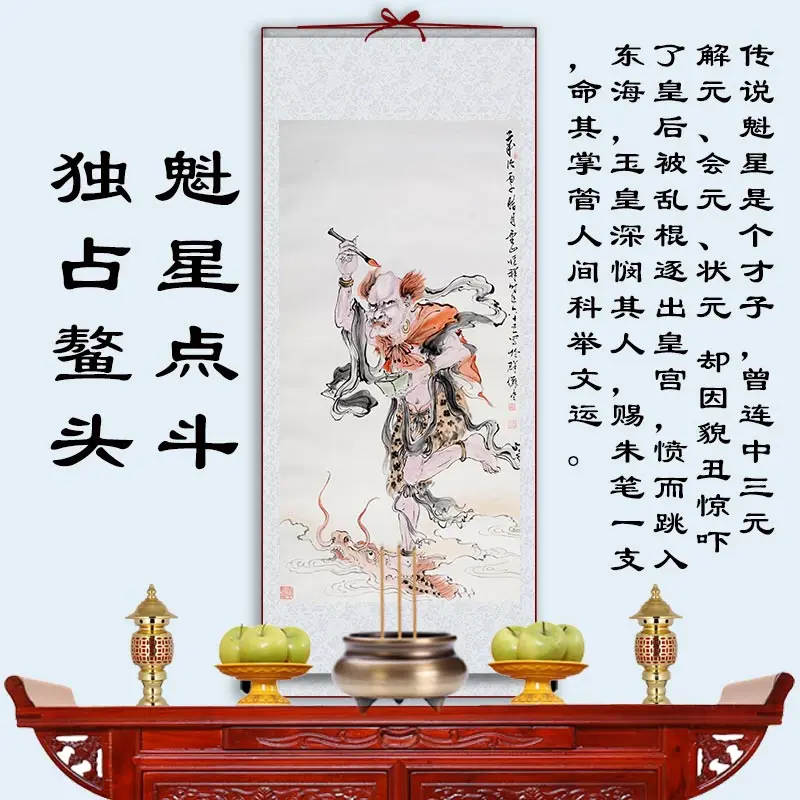 传说魁星是个才子，曾连中三元
解元、会元、状元 却因貌丑惊吓
了皇后被乱棍逐出皇宫，愤而跳入
东海，玉皇深悯其人，赐朱笔一支
，命其掌管人间科举文运。
魁星点斗
独占鳌头